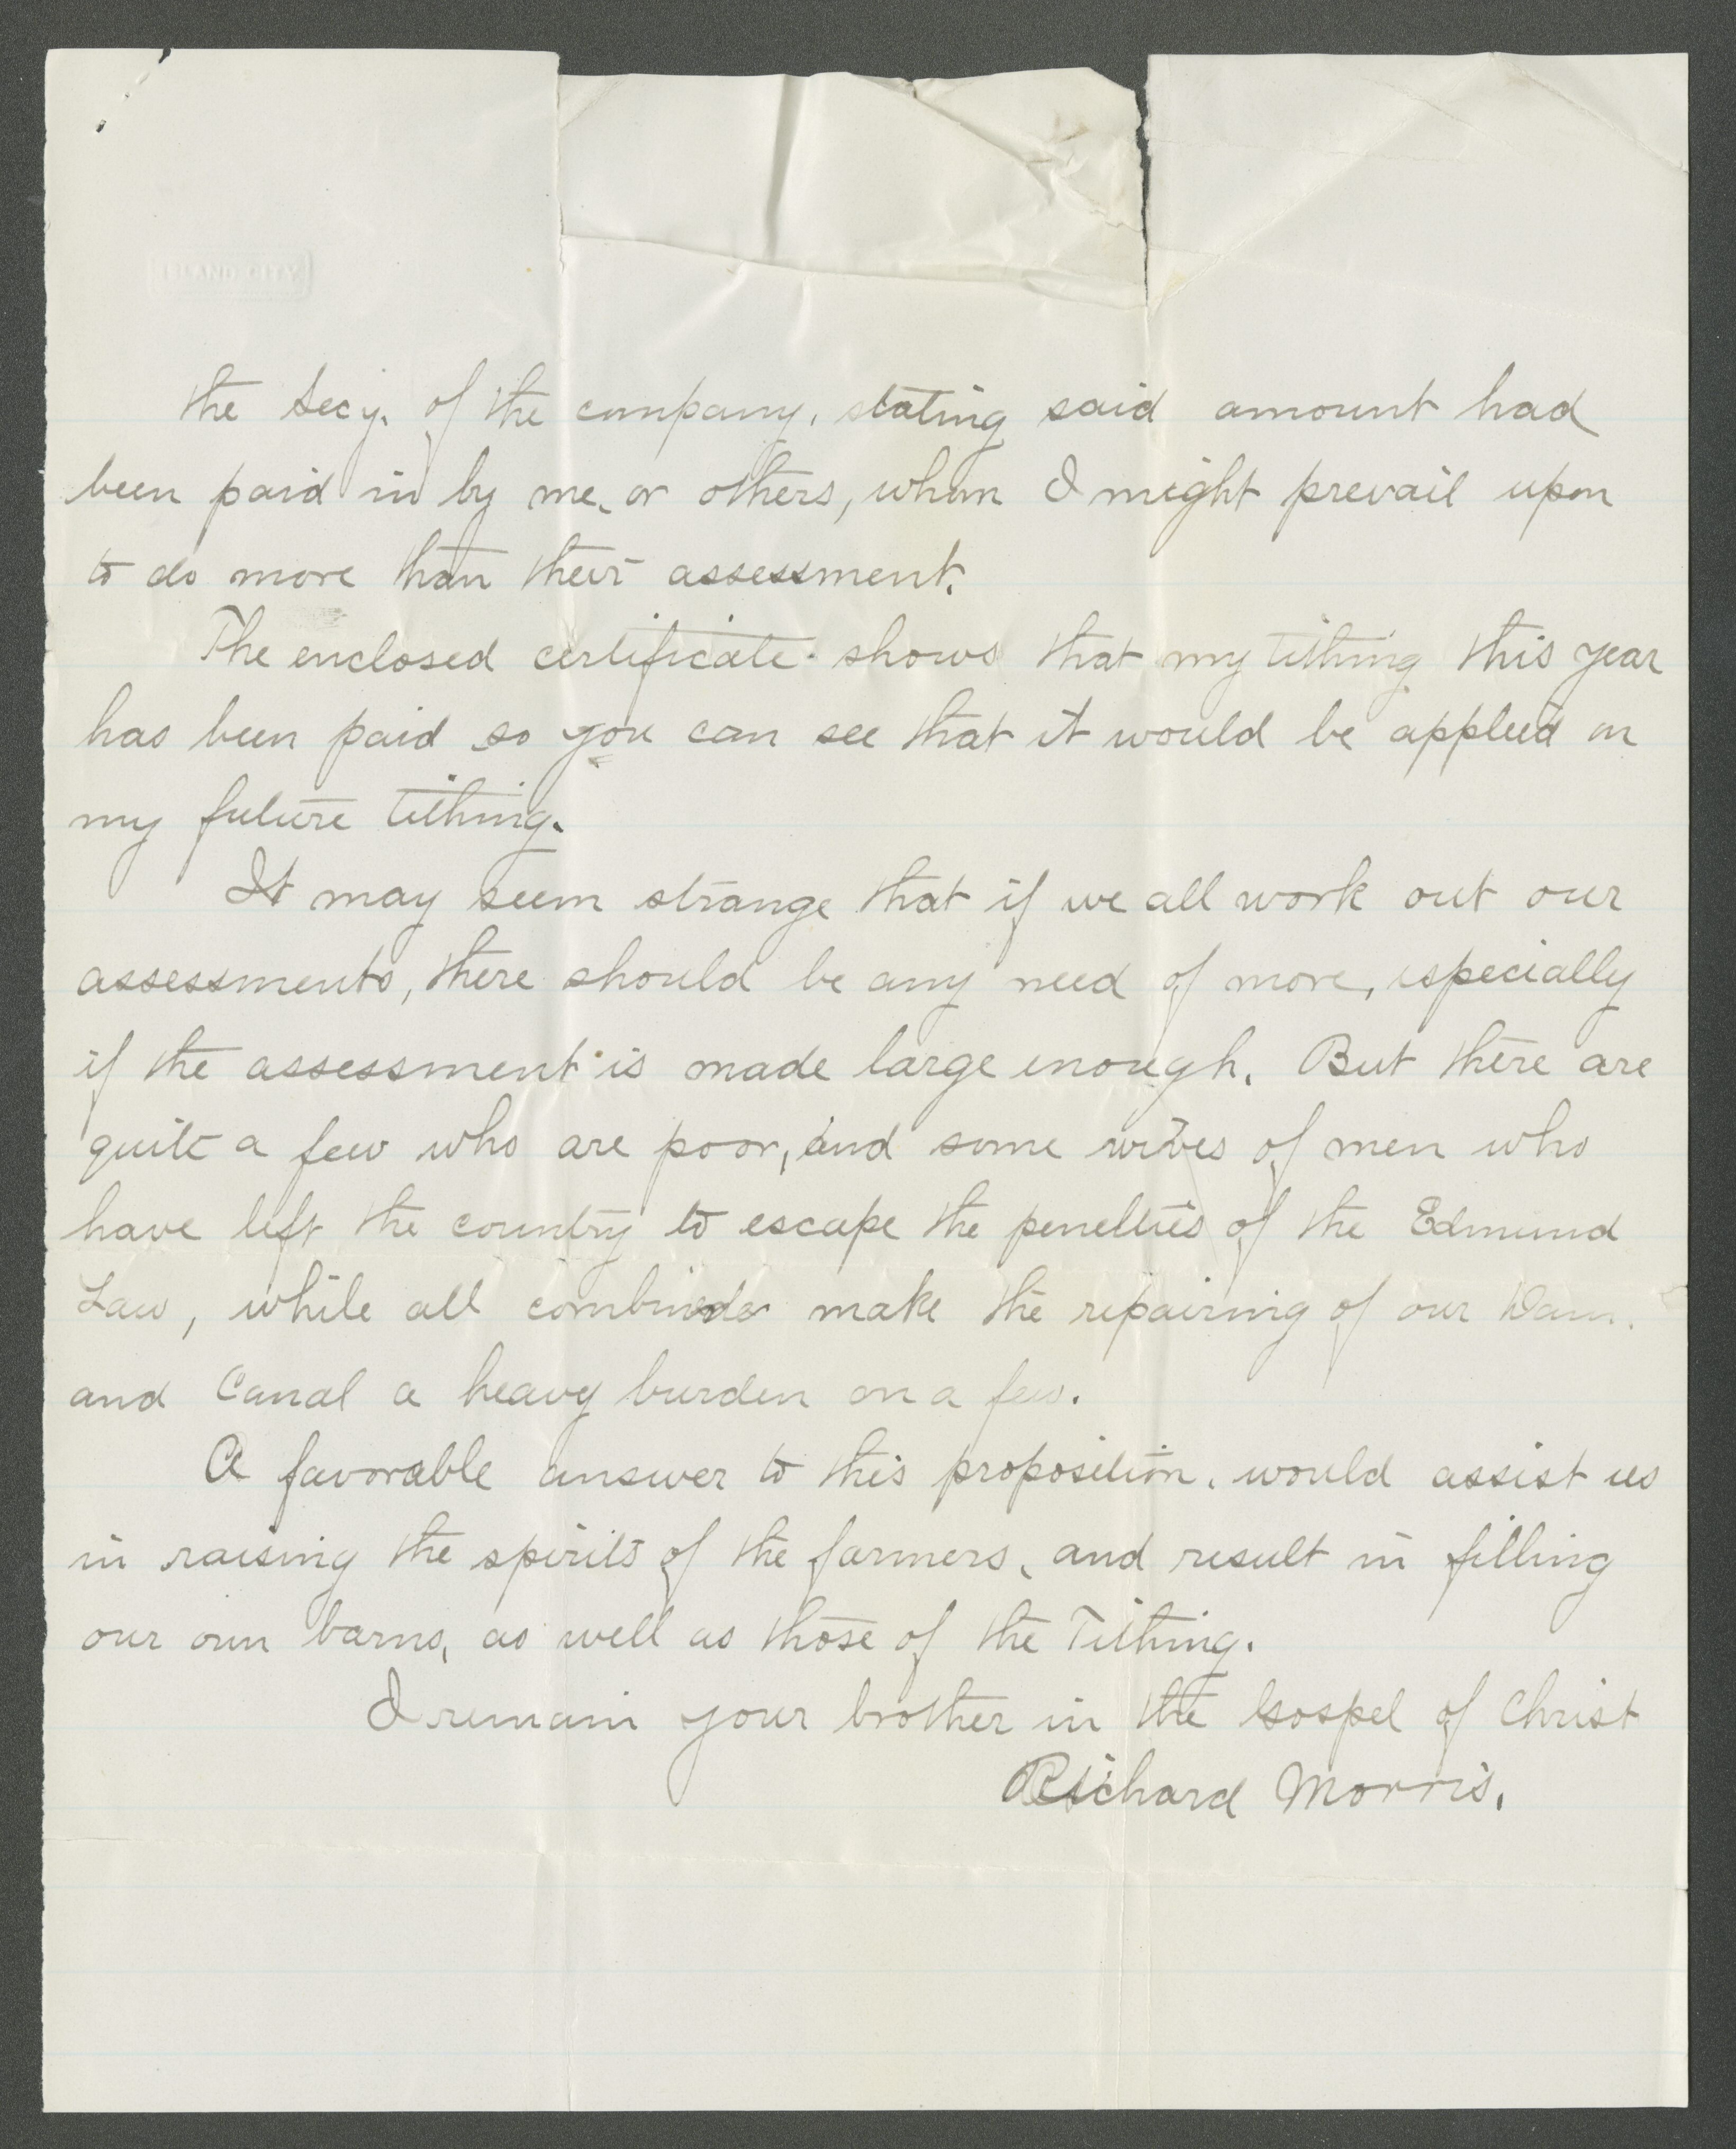 ISLAND CITY
the Secy. of the company, stating said amount had
been paid in by me, or others, whom I might prevail upon
to do more than their assessment.
The enclosed certificate shows that my tithing this year
has been paid so you can see that it would be applied on
my future tithing.
It may seem strange that if we all work out our
assessments, there should be any need of more, especially
if the assessment is made large enough. But there are
quite a few who are poor, and some wives of men who
have left the country to escape the penelties of the Edmund
Law, while all combined make the repairing of our Dam.
and Canal a heavy burden on a few.
A favorable answer to this proposition, would assist us
in raising the spirits of the farmers, and result in filling
our own barns, as well as those of the Tithing.
I remain your brother in the Gospel of Christ
Richard Morris.